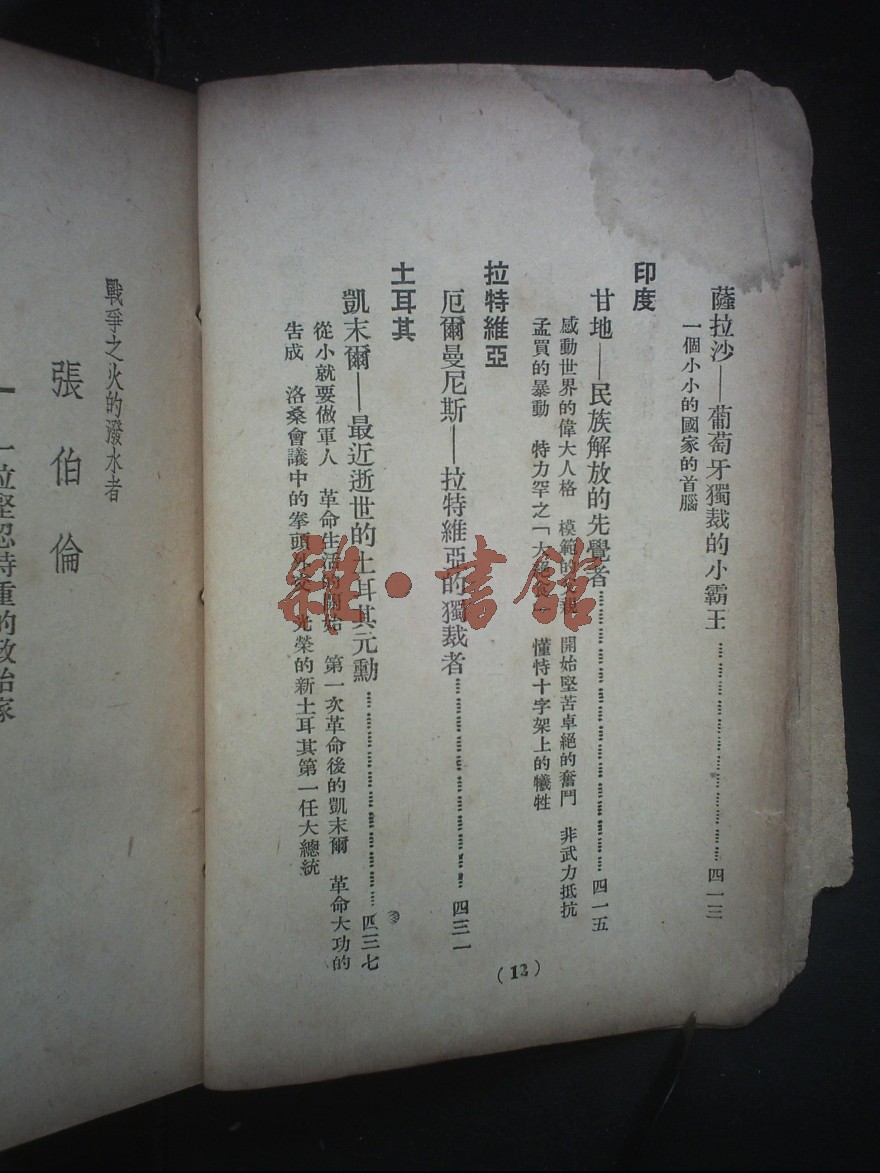 薩拉沙——葡萄牙獨裁的小霸王……四一三
一個小小的國家的首腦
印度
甘地——民族解放的先覺者……四一五
感動世界的偉大人格 模範的 開始堅苦卓絕的奮鬥 非武力抵抗
孟買的暴動 特力罕之「大 懂恃十字架上的犧牲
拉特維亞
厄爾曼尼斯——拉特維亞的獨裁者……四三一
土耳其
凱末爾——最近逝世的土耳其元勳……四三七
從小就要做軍人 革命生活的開始 第一次革命後的凱末爾 革命大功的
告成 洛桑會議中的拳頭外交 光榮的新土耳其第一任大總統
(12)
戰爭之火的潑水者
張伯倫
一 一位堅忍持重的政治家
雜·書館